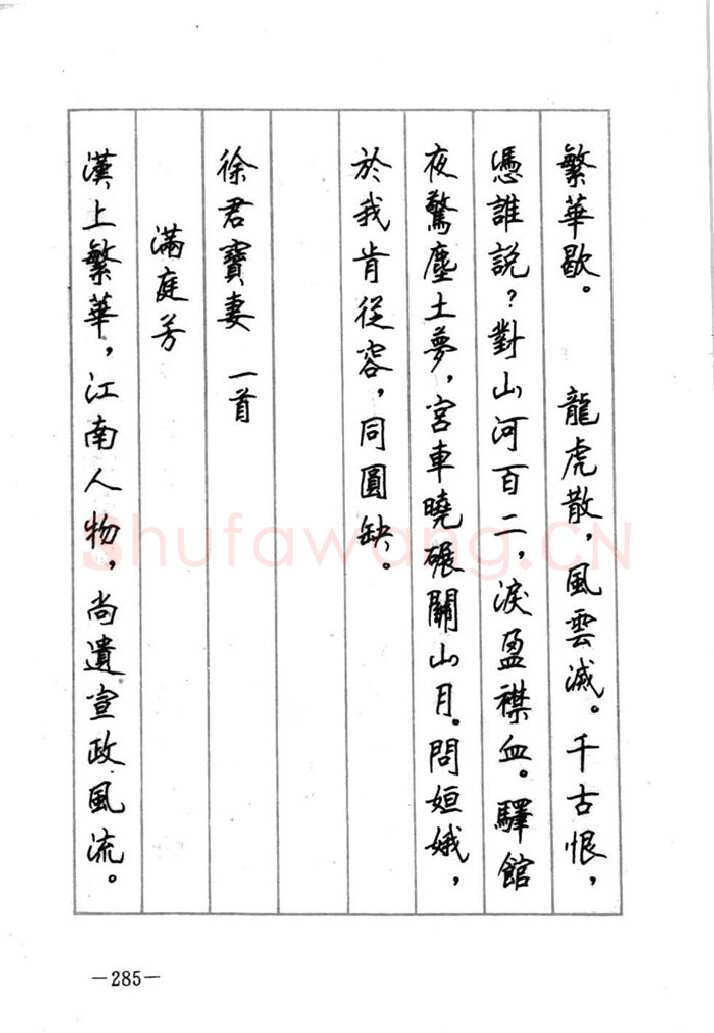 繁華歇。　龍虎散，風雲滅。千古恨，
憑誰說？對山河百二，淚盈襟血。驛館
夜驚塵土夢，宮車曉碾關山月。問姮娥，
於我肯從容，同圓缺。
徐君寶妻　一首
滿庭芳
漢上繁華，江南人物，尚遺宣政風流。
shufawang.CN
—285—